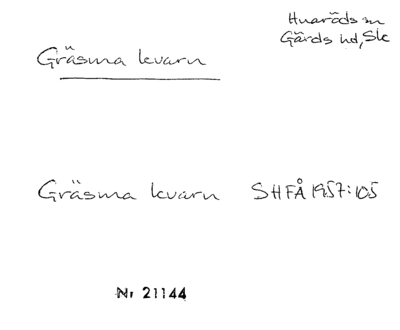 Huaröds sn
Gärds hd, Sk
Gräsma kvarn
Gräsma kvarn SHFÅ 1957:105
Nr 21144